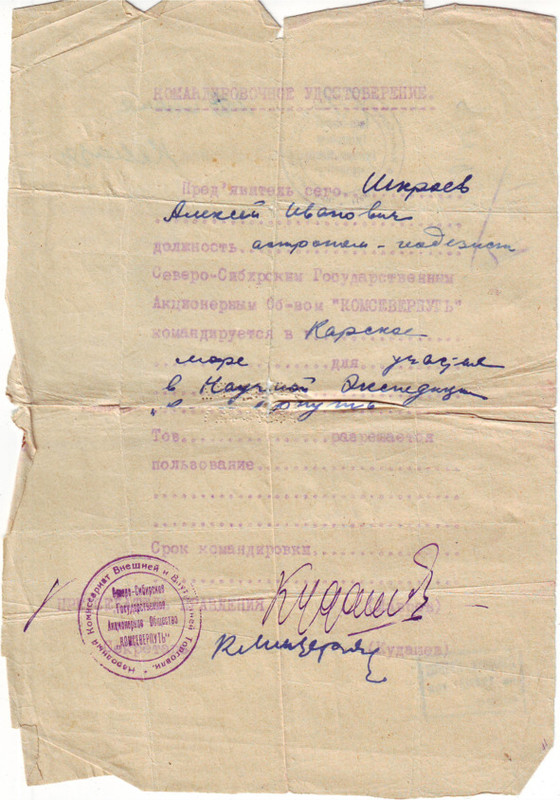 КОМАНДИРОВОЧНОЕ УДОСТОВЕРЕНИЕ.
Пред'явитель сего Шкраев
Алексей Иванович
должность астроном-геодезист
Северо-Сибирским Государственным
Акционерным Об-вом "КОМСЕВЕРПУТЬ"
командируется в Карское
море для участия
в Научной Экспедиции
Тов. разрешается
пользование
Срок командировки
Кудашев
(Кудашев)
Народный Комиссариат Внешней и Внутренней Торговли
Северо-Сибирское
Государственное
Акционерное Общество
"КОМСЕВЕРПУТЬ"